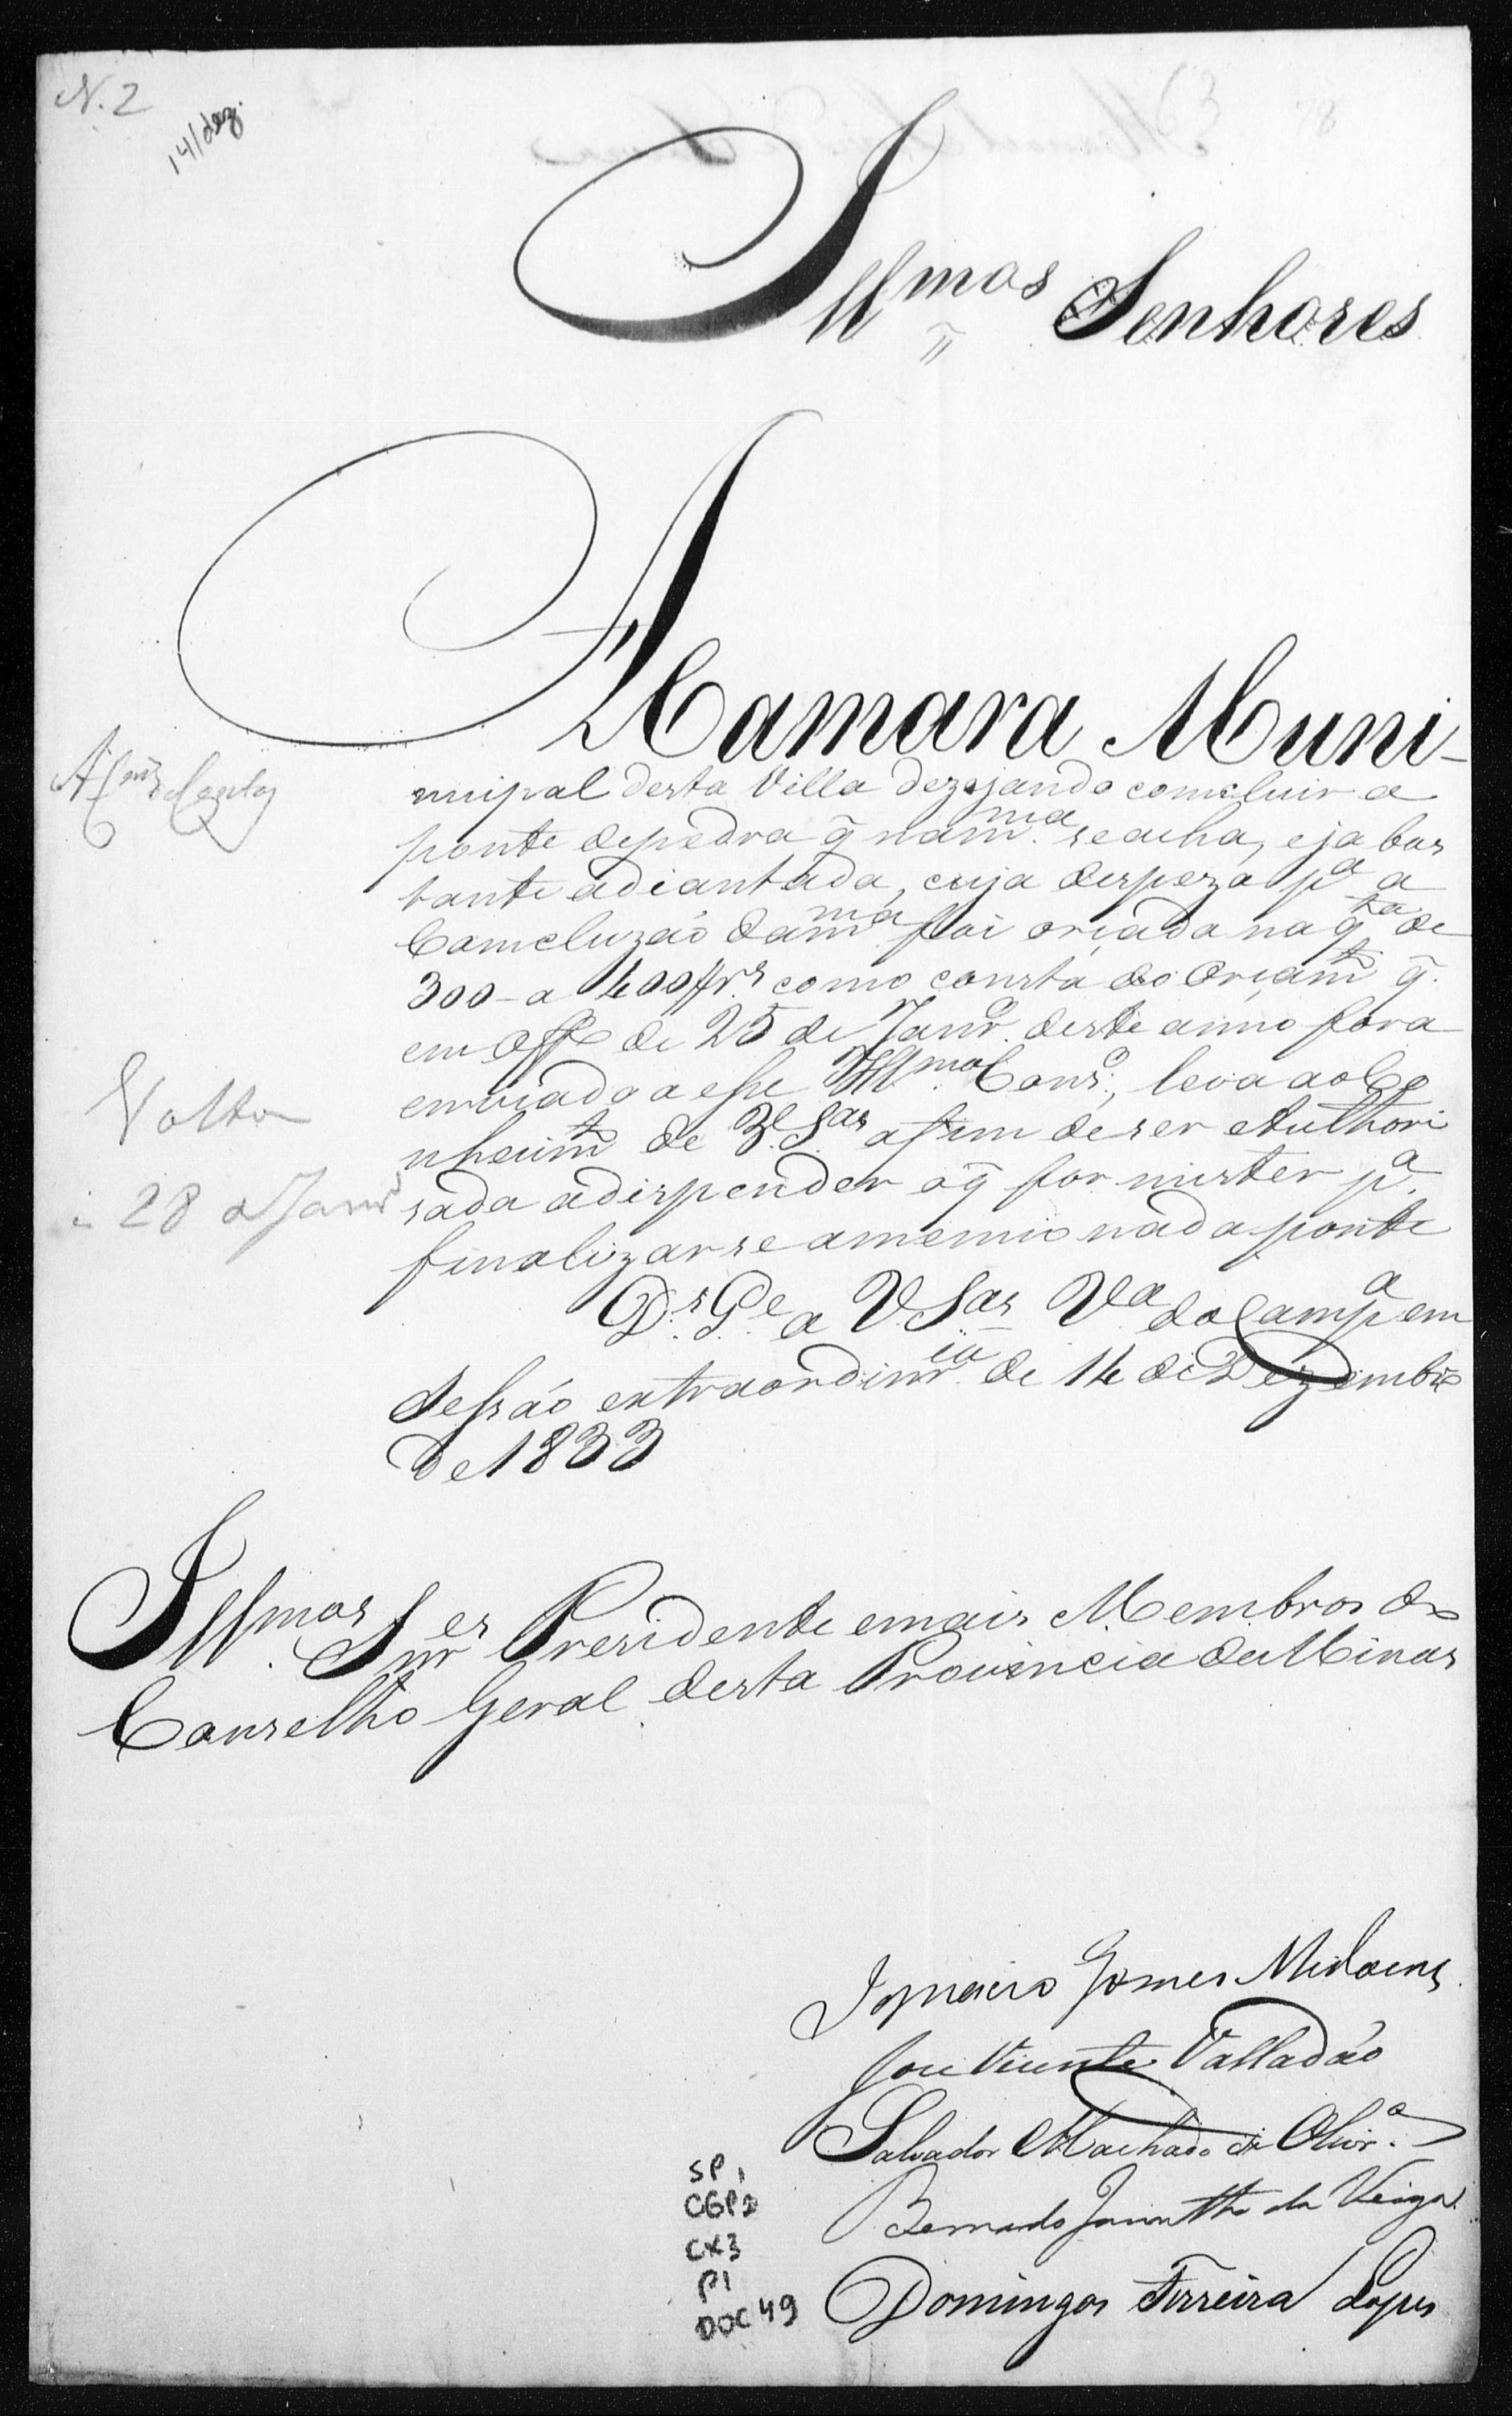 N. 2
14/dez.
78
Illmos Senhores
A Camara Muni-
micipal desta Villa dezejando comcluir a
ponte de pedra q̃ na mma. se acha, e ja bas
tante adiantada, cuja despeza pa a
Comcluzaõ da mma foi orçada na qta de
300 a 400$rs como consta do Orçamto q̃.
em Offo de 25 de Janro. deste anno fora
enviado a esse Illmo Conso., leva ao Co
nhecimto de V. Sas afim de ser Authori
sada a dispender o q̃ for mister pa.
finalizar se a mencionada ponte
Ds. Ge a V Sas Va da Campa em
Sessaõ extraordinria de 14 de Dezembro
de 1833
Illmos. Snres Presidente e mais Membros do
Conselho Geral desta Provincia de Minas
Volta
28 Janro
Ignacio Gomes Midoens
Joze Vicente Valladaõ
Salvador Machado de Olivra.
Bernardo Jacintho da Veiga
Domingos Ferreira Lopes
SP 1
CGP 2
CX3
P1
DOC 49